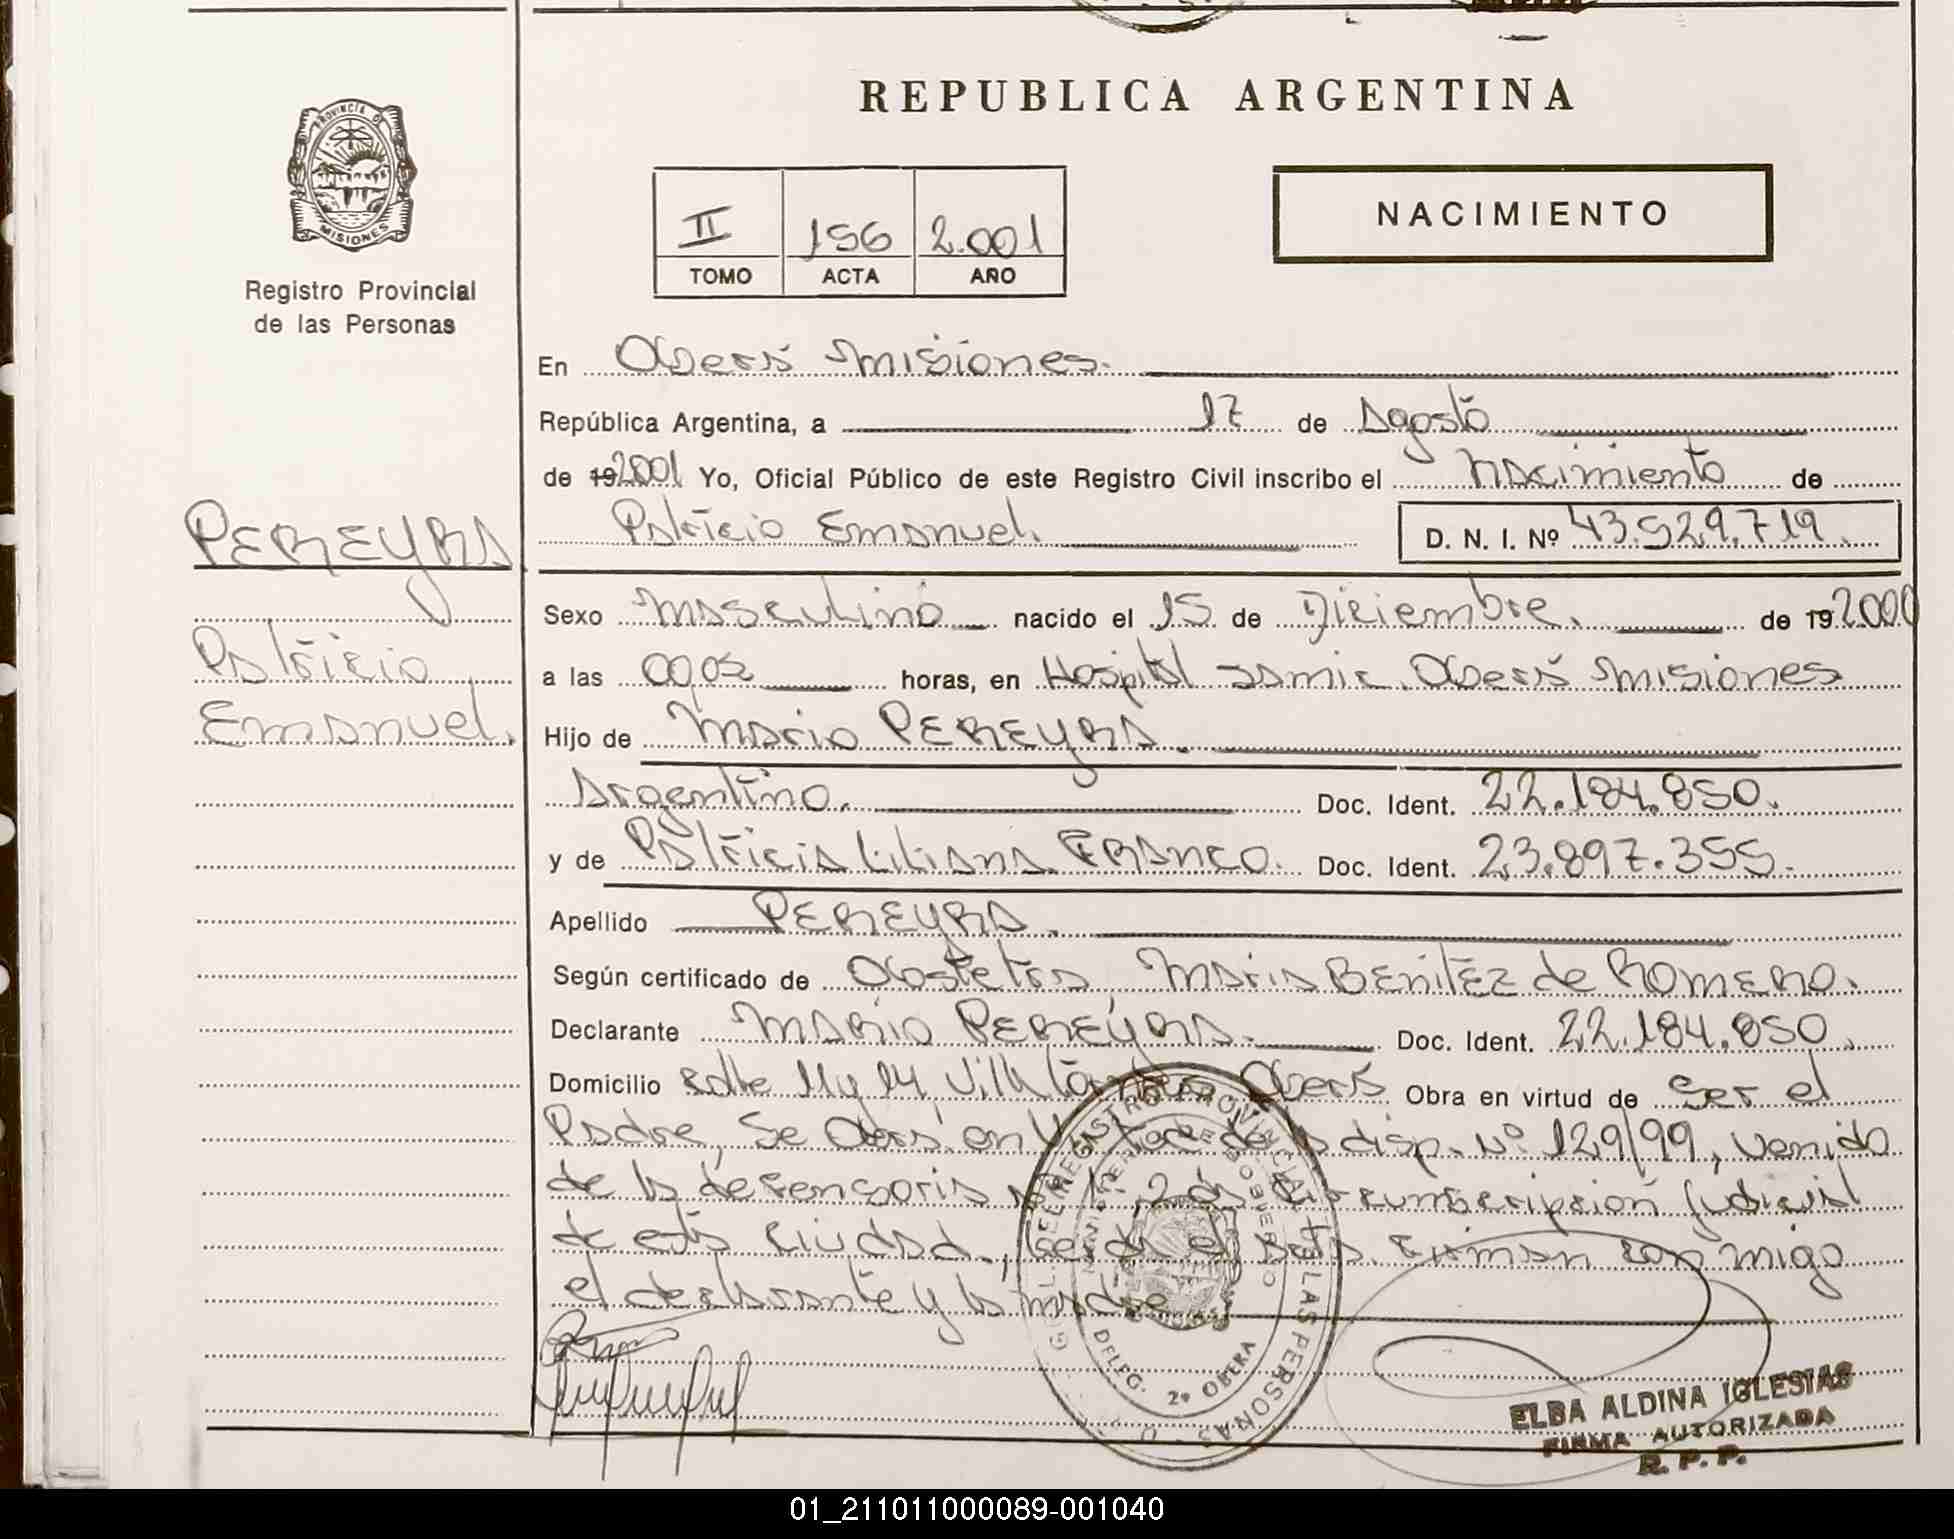 REPUBLICA ARGENTINA
PROVINCIA DE
MISIONES
Registro Provincial
de las Personas
II 156 2.001
TOMO ACTA AÑO
NACIMIENTO
En Oberá Misiones.
República Argentina, a 17 de Agosto
de 19 2001 Yo, Oficial Público de este Registro Civil inscribo el Nacimiento de
Patricio Emanuel. D. N. I. Nº 43.529.719.
PEREYRA
Patricio
Emanuel.
Sexo Masculino nacido el 15 de Diciembre. de 19 2000
a las 00,05 horas, en Hospital Samic. Oberá Misiones
Hijo de Mario PEREYRA.
Argentino. Doc. Ident. 22.184.850.
y de Patricia Liliana FRANCO. Doc. Ident. 23.897.355.
Apellido PEREYRA.
Según certificado de Obstetra, Maria BENITEZ de ROMERO.
Declarante MARIO PEREYRA. Doc. Ident. 22.184.850.
Domicilio calle 11 y 14 Villa Oberá Obra en virtud de ser el
Padre, Se Obra en de la disp. Nº 129/99, venido
de la defensoria circunscripcion judicial
de esta ciudad, el acta. Firman con migo
el declarante y la madre
REGISTRO PROVINCIAL DE LAS PERSONAS
MINISTERIO DE GOBIERNO
DELEG. 2ª OBERA
ELBA ALDINA IGLESIAS
FIRMA AUTORIZADA
R. P. P.
01_211011000089-001040